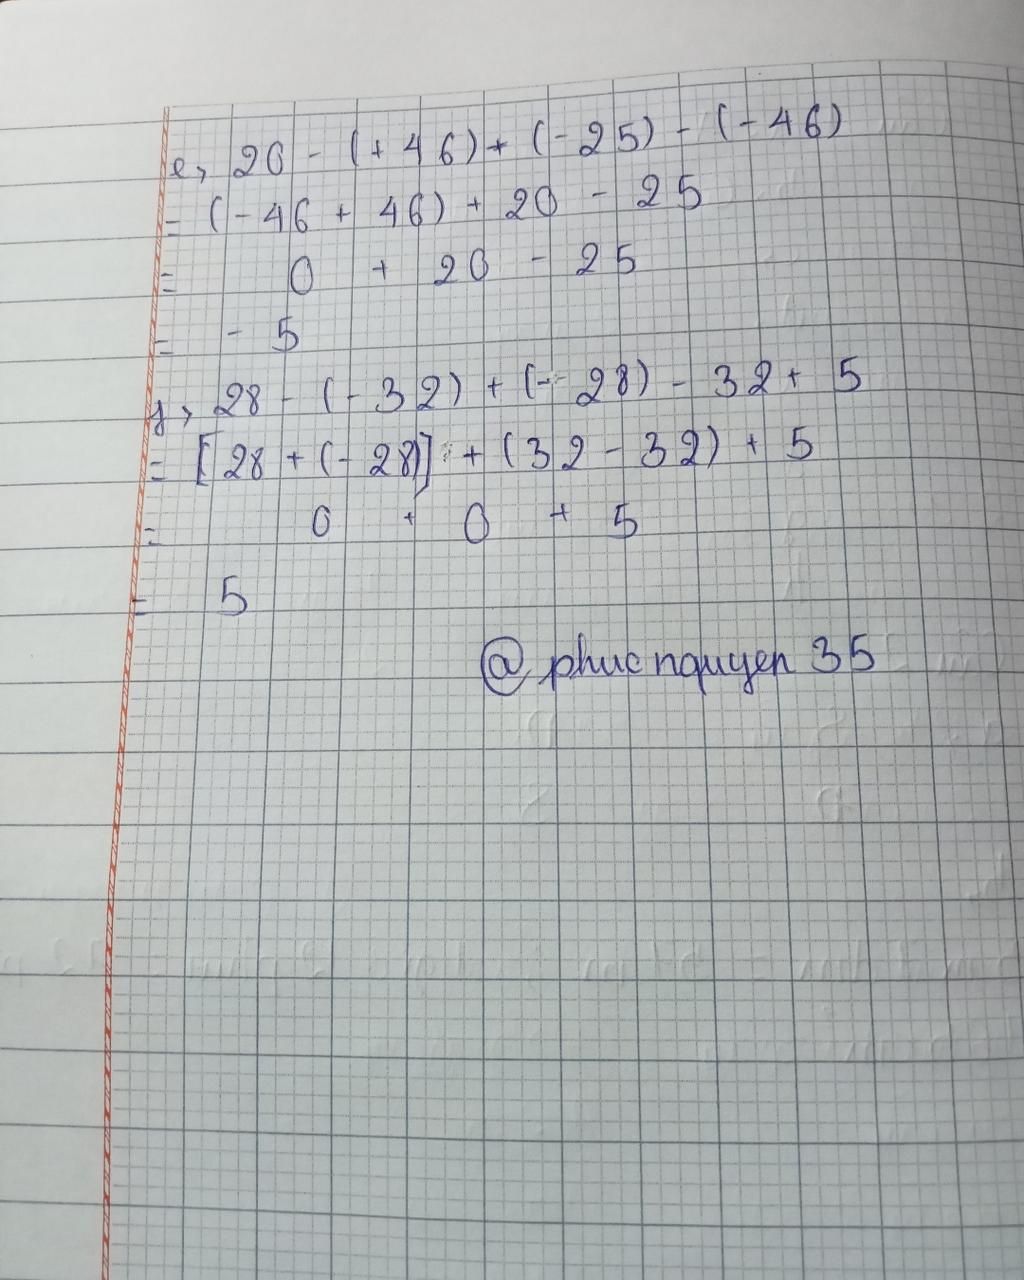 e, 20 - (+ 46) + (- 25) - (- 46)
= (- 46 + 46) + 20 - 25
= 0 + 20 - 25
= - 5
f, 28 - (- 32) + (- 28) - 32 + 5
= [28 + (- 28)] + (32 - 32) + 5
= 0 + 0 + 5
= 5
@phucnguyen35